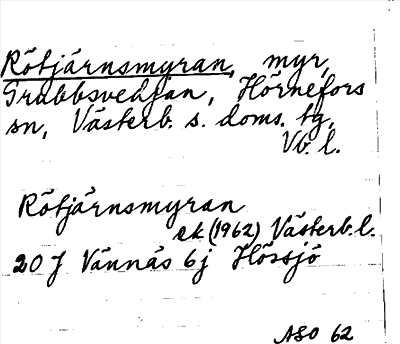 Rötjärnsmyran, myr,
Grubbsvedjan, Hörnefors
sn, Västerb. s. doms. tg,
Vb. l.
Rötjärnsmyran
ek (1962) Västerb. l.
20 J Vännäs 6j Hössjö
ASO 62